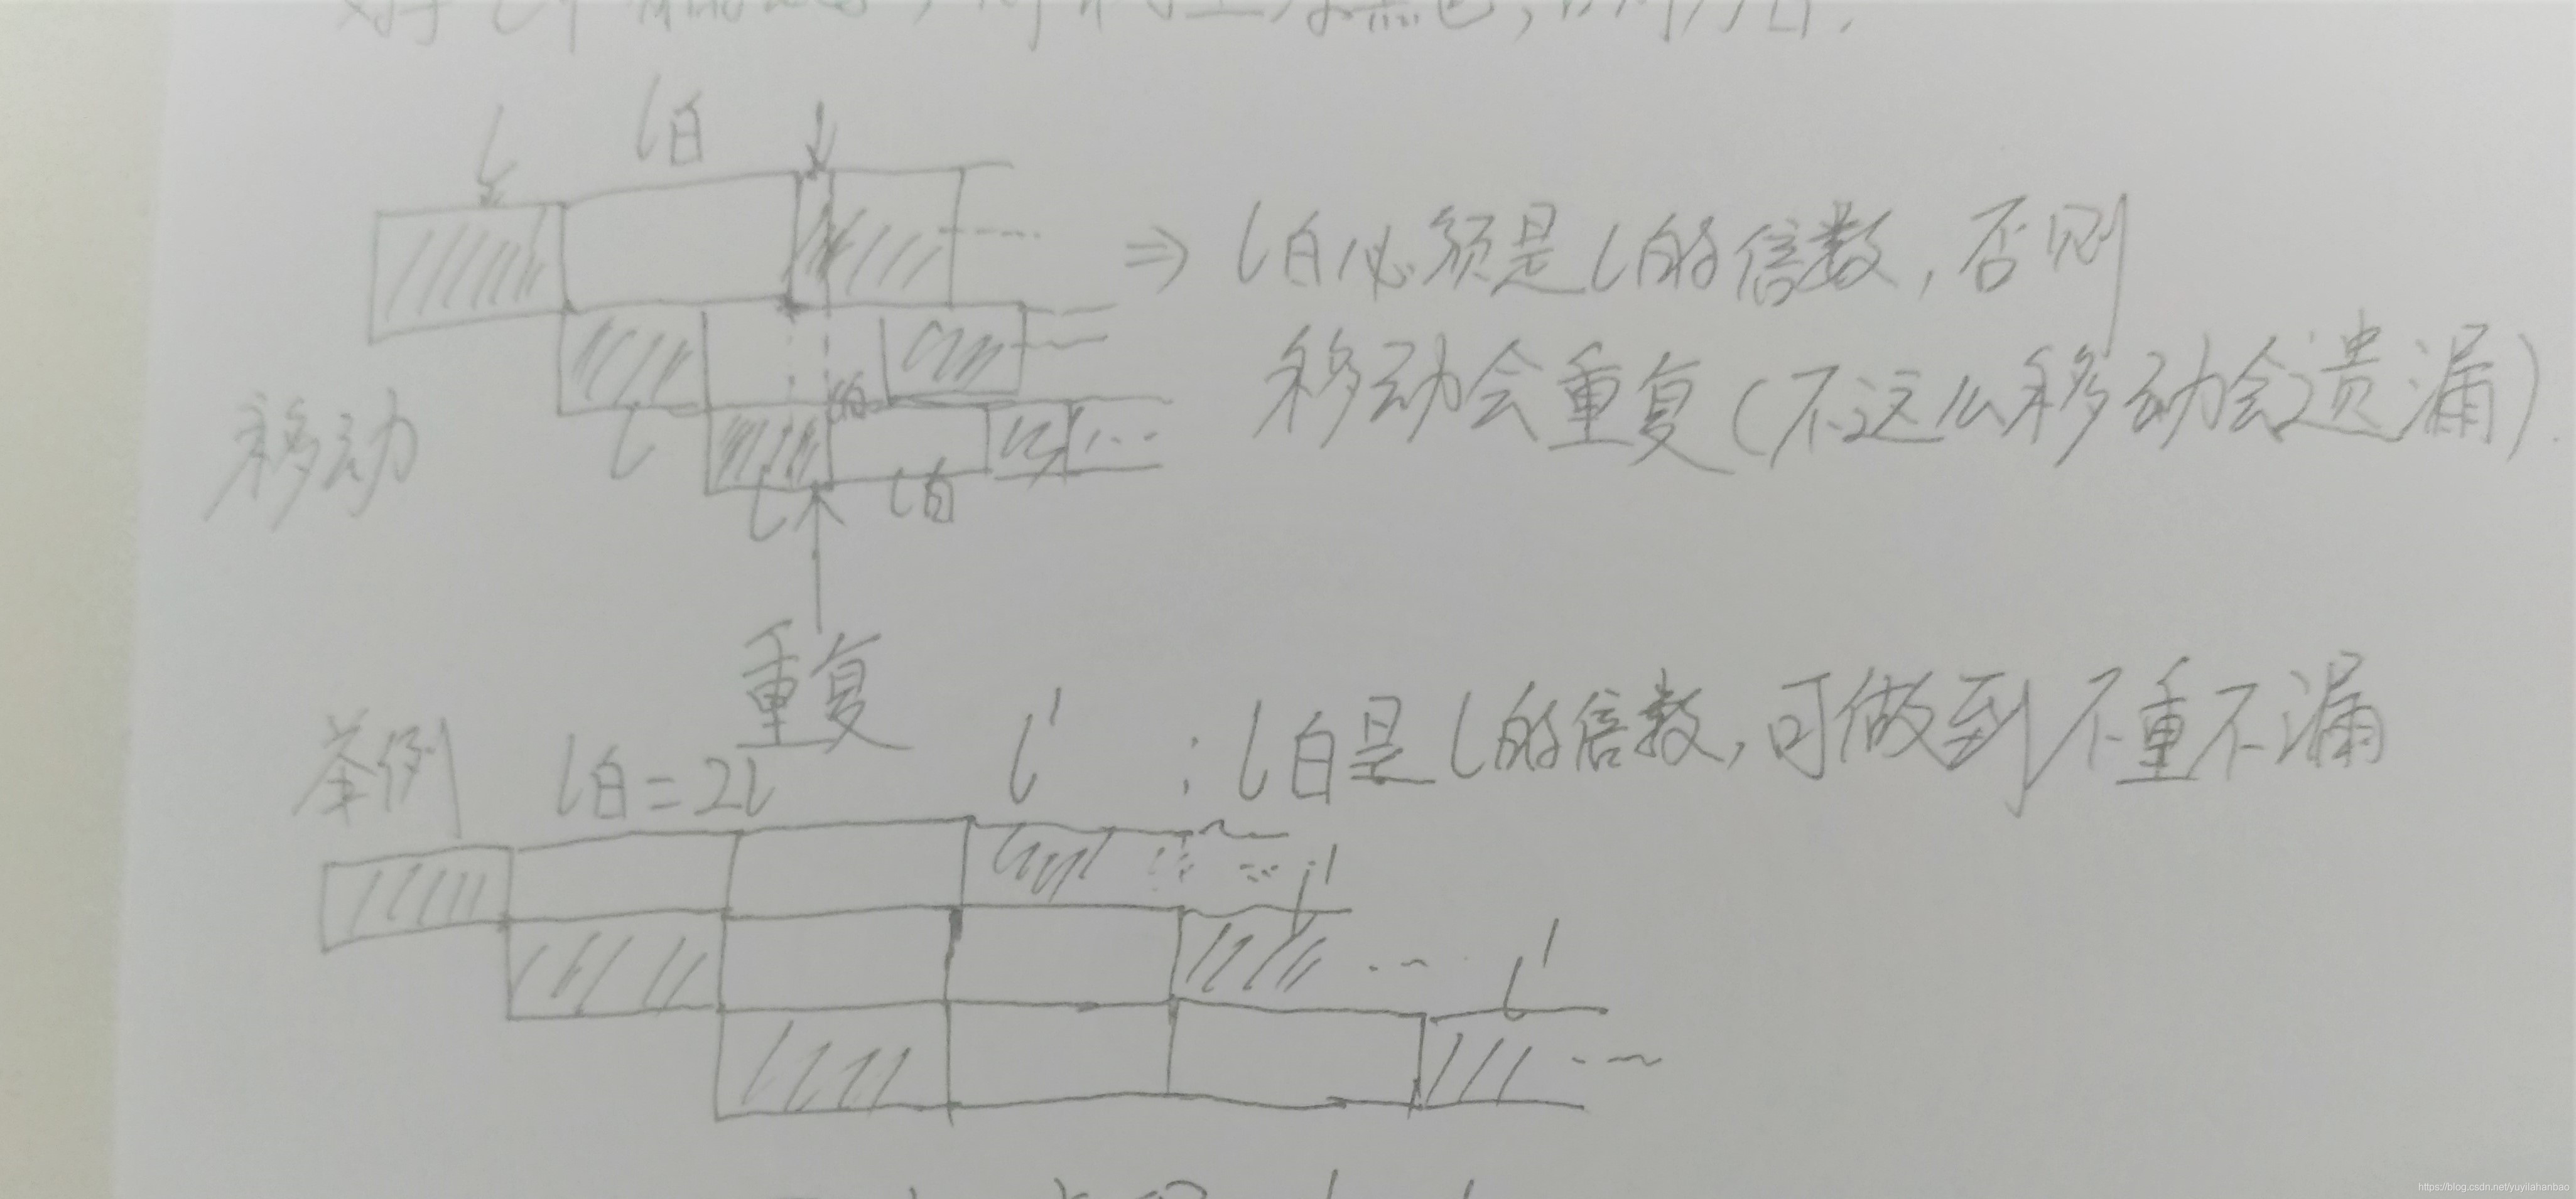 l白
⇒ l白必须是l的倍数,否则
移动会重复(不这么移动会遗漏).
移动
l
l白
l
l白
重复
举例 l白=2l
l' : l白是l的倍数,可做到不重不漏
l'
l'
https://blog.csdn.net/yuyilahanbao